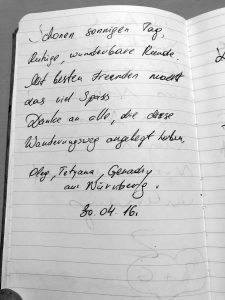 Schönen sonnigen Tag,
Ruhige, wunderbare Runde.
Mit besten Freunden macht
das viel Spass
Danke an alle, die diese
Wanderungsweg angelegt haben.
Oleg, Tetyana, Genadiy
aus Nürnberg.
30.04.16.